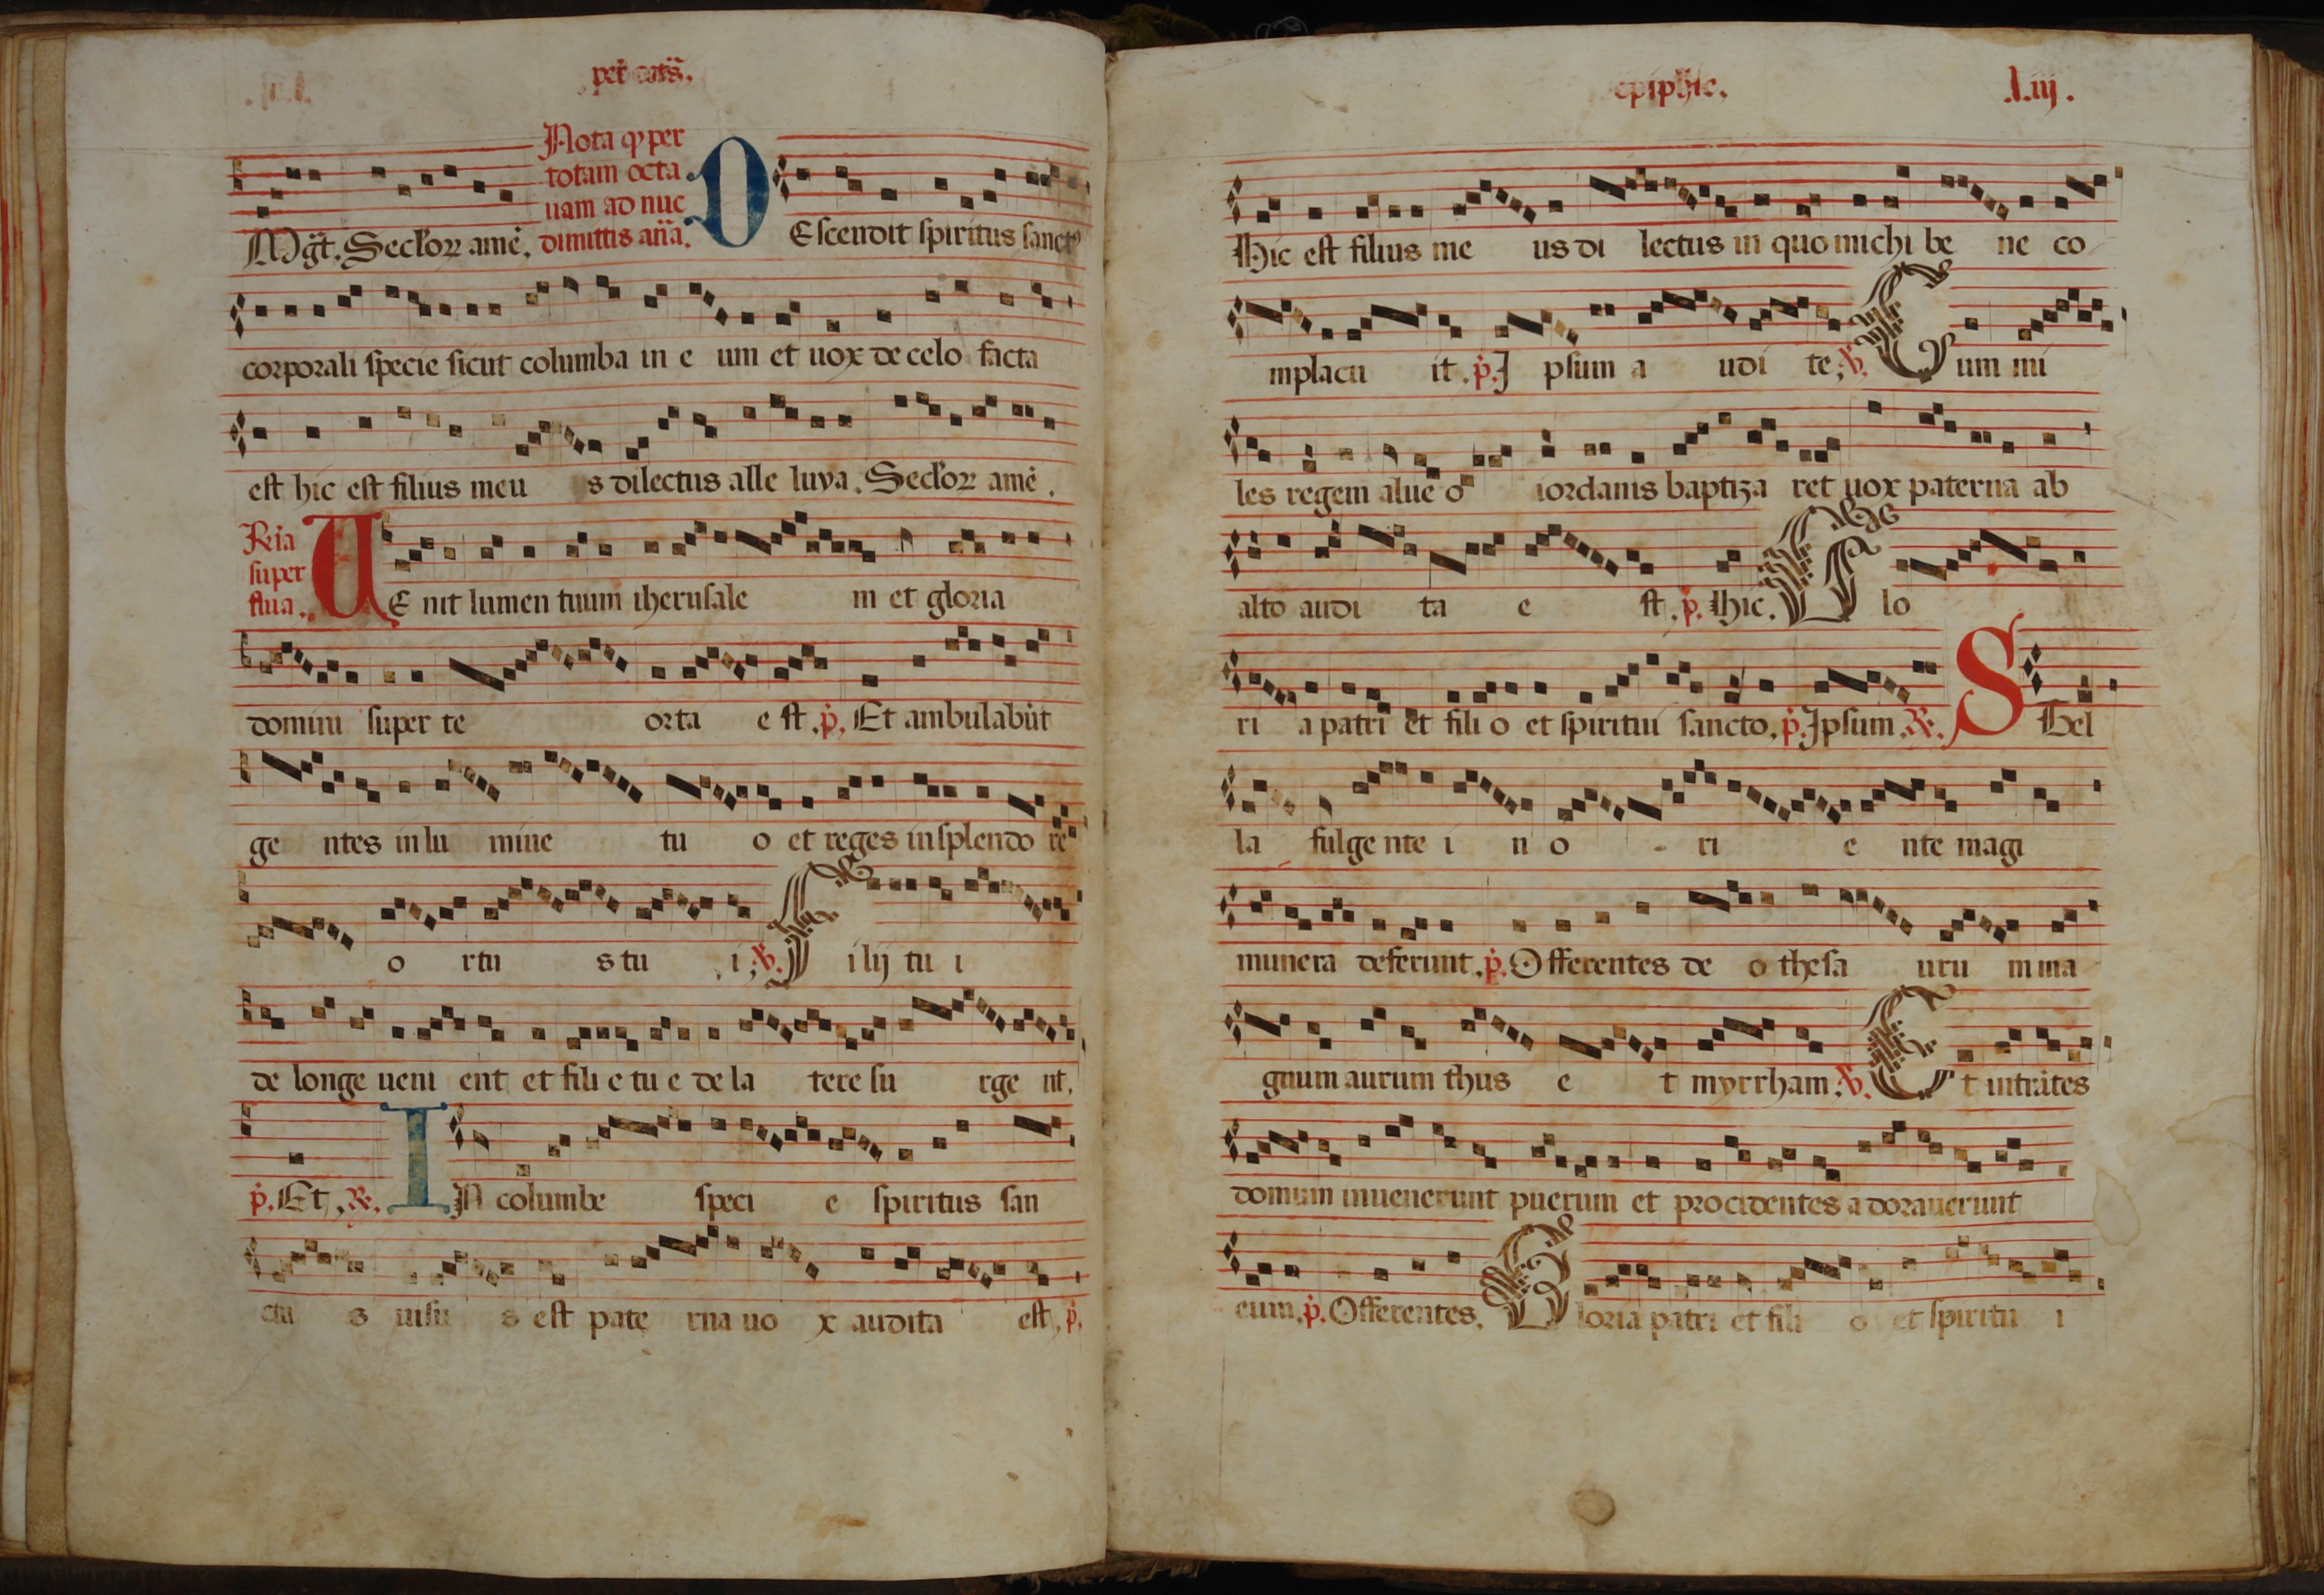 Nota qꝑ per
totam octa
uam ad nūc
dimittis an̄a.
Mgt̄. Sc̄lor̄ꝝ amē. DEscendit spiritus sanctꝰ
corporali specie sicut columba in e um et uox de celo facta
est hic est filius meu s dilectus alle luya. Sc̄lor̄ꝝ amē.
Rn̄a
super
flua.
UE nit lumen tuum iherusale m et gloria
domini super te orta e st. p̄. Et ambulabūt
ge ntes in lu mine tu o et reges in splendo re
o rtu s tu i; ℣. F ilij tu i
de longe ueni ent et fili e tu e de la tere su rge nt.
p̄. Et. ℟. IN columbe speci e spiritus san
ctu s uisu s est pate rna uo x audita est. p̄.
epiphīe. .l.iij.
Hic est filius me us di lectus in quo michi be ne co
mplacu it. p̄. I psum a udi te; ℣. C um ni
les regem alue o iordanis baptiza ret uox paterna ab
alto audi ta e st. p̄. Hic. G lo
ri a patri et fili o et spiritui sancto. p̄. Ipsum. ℟. STel
la fulge nte i n o ri e nte magi
munera deferunt. p̄. Offerentes de o thesa uru m ma
gnum aurum thus e t myrrham: ℣. E t intrātes
domum inuenerunt puerum et procidentes a dorauerunt
eum. p̄. Offerentes. G loria patri et fili o et spiritu i